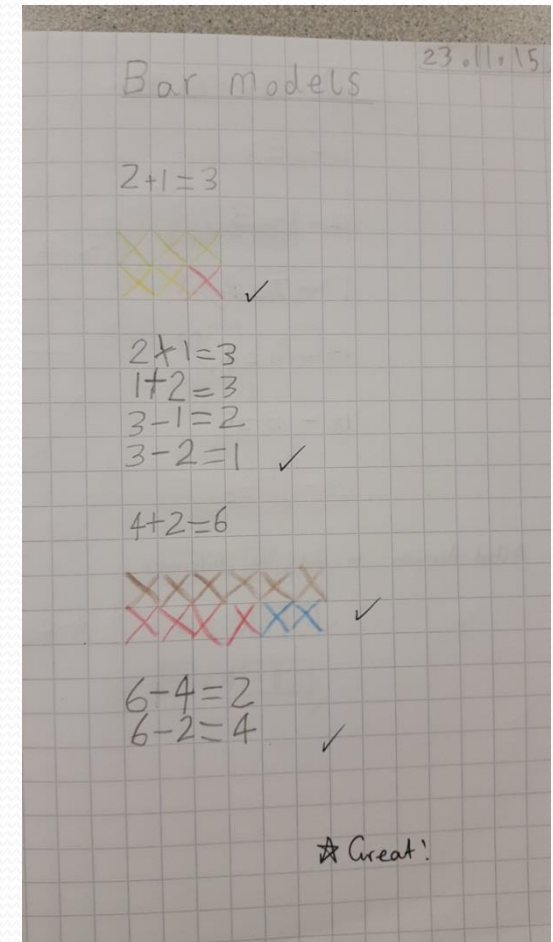 23.11.15
Bar models
2+1=3
2+1=3
1+2=3
3-1=2
3-2=1
4+2=6
6-4=2
6-2=4
☆ Great!